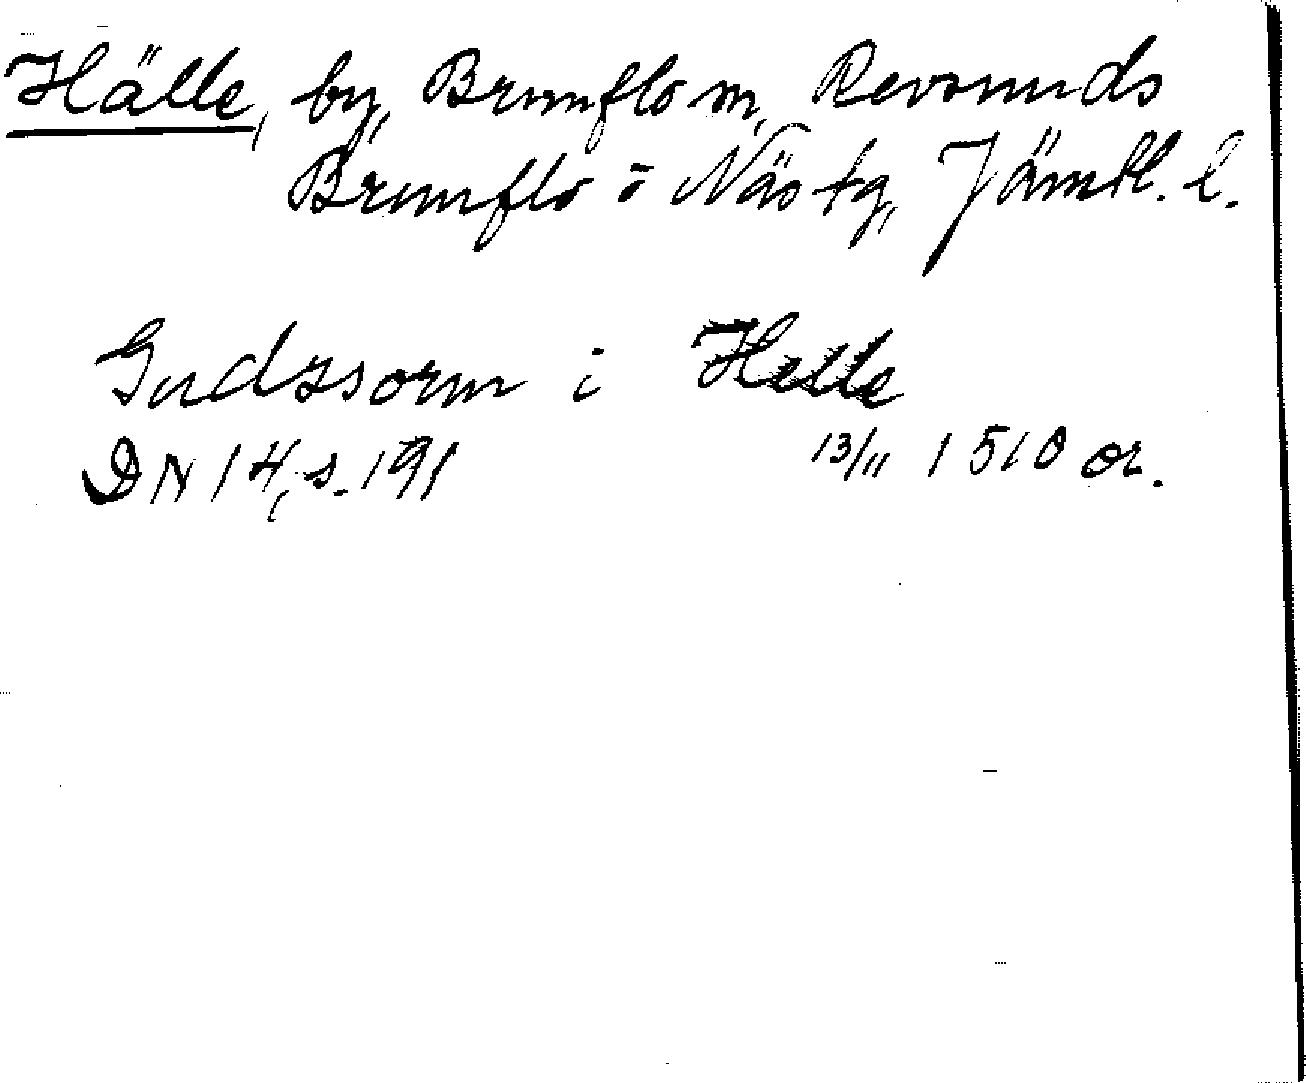 Hälle, by, Brunflo sn, Revsunds
Brunflo o Näs tg, Jämtl. l.
Gudzsorm i Helle
DN 14, s. 191 13/11 1510 or.